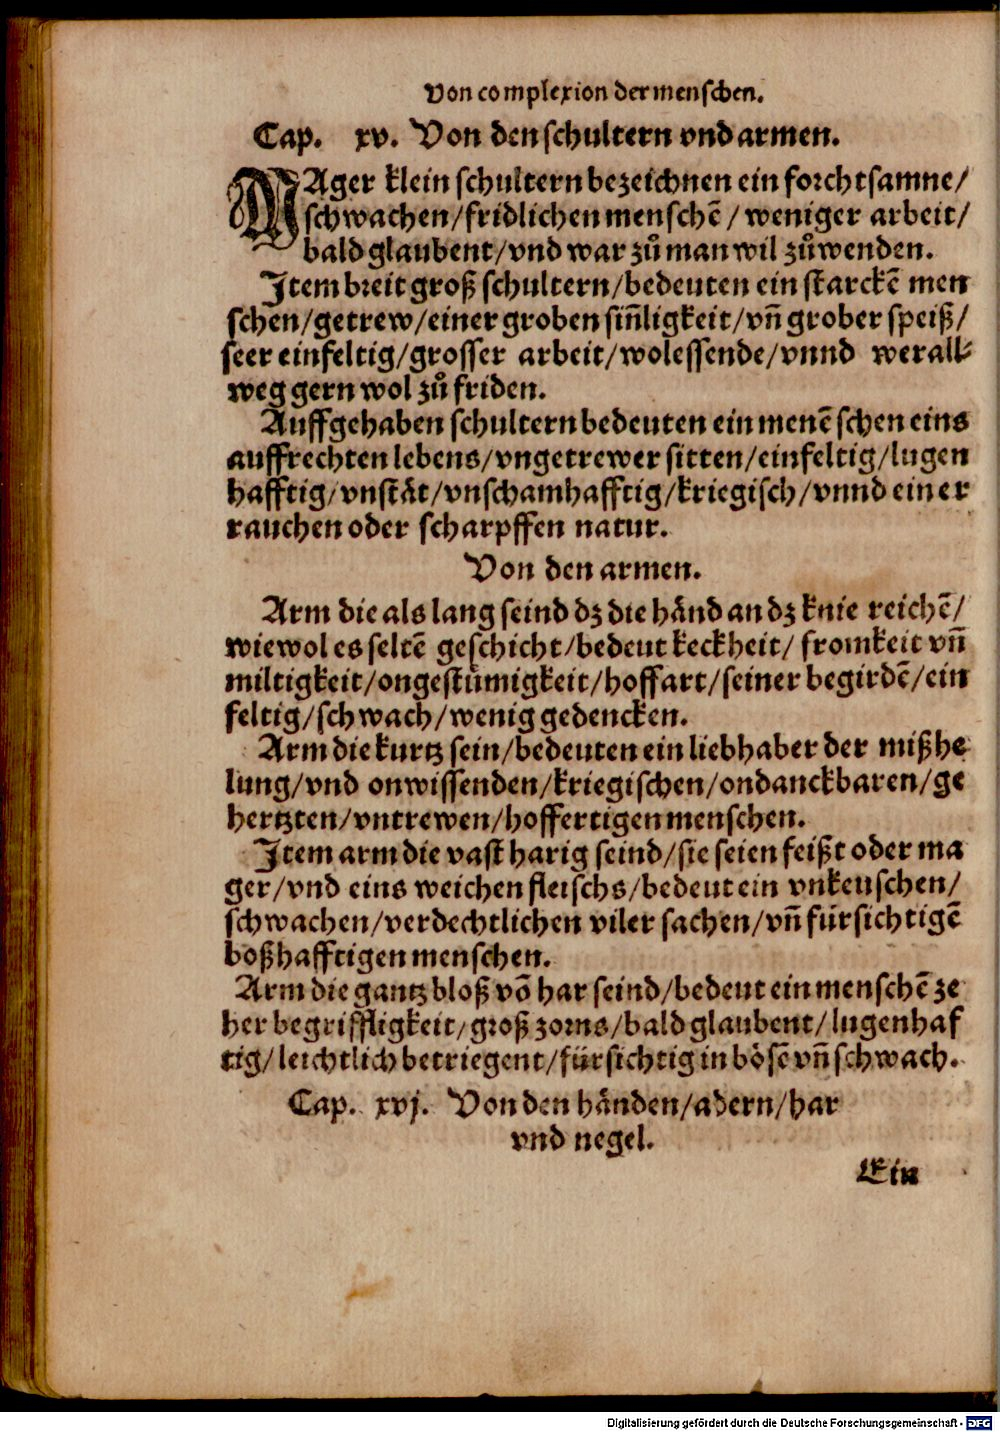 Von complexion der menschen.
Cap. xv. Von den schultern vnd armen.
MAger klein schultern bezeichnen ein forchtsamne/
schwachen/fridlichen menschē/ weniger arbeit/
bald glaubent/vnd war zů man wil zůwenden.
Item breit groß schultern/bedeuten ein starckē men
schen/getrew/einer groben siñligkeit/vñ grober speiß/
seer einfeltig/grosser arbeit/wolessende/vnnd werall⸗
weg gern wol zů friden.
Auffgehaben schultern bedeuten ein menē schen eins
auffrechten lebens/vngetrewer sitten/einfeltig/lugen
hafftig/vnstät/vnschamhafftig/kriegisch/vnnd einer
rauchen oder scharpffen natur.
Von den armen.
Arm die als lang seind dz die händ an dz knie reichē/
wiewol es seltē geschicht/bedeut keckheit/ fromkeit vñ
miltigkeit/ongestümigkeit/hoffart/seiner begirdē/ein
feltig/schwach/wenig gedencken.
Arm die kurtz sein/bedeuten ein liebhaber der mißhe
lung/vnd onwissenden/kriegischen/ondanckbaren/ge
hertzten/vntrewen/hoffertigen menschen.
Item arm die vast harig seind/sie seien feißt oder ma
ger/vnd eins weichen fleischs/bedeut ein vnkeuschen/
schwachen/verdechtlichen viler sachen/vñ fürsichtigē
boßhafftigen menschen.
Arm die gantz bloß võ har seind/bedeut ein menschē ze
her begriffligkeit/groß zorns/bald glaubent/lugenhaf
tig/leichtlich betriegent/fürsichtig in bösē vñ schwach.
Cap. xvj. Von den händen/adern/har
vnd negel.
Ein
Digitalisierung gefördert durch die Deutsche Forschungsgemeinschaft - DFG